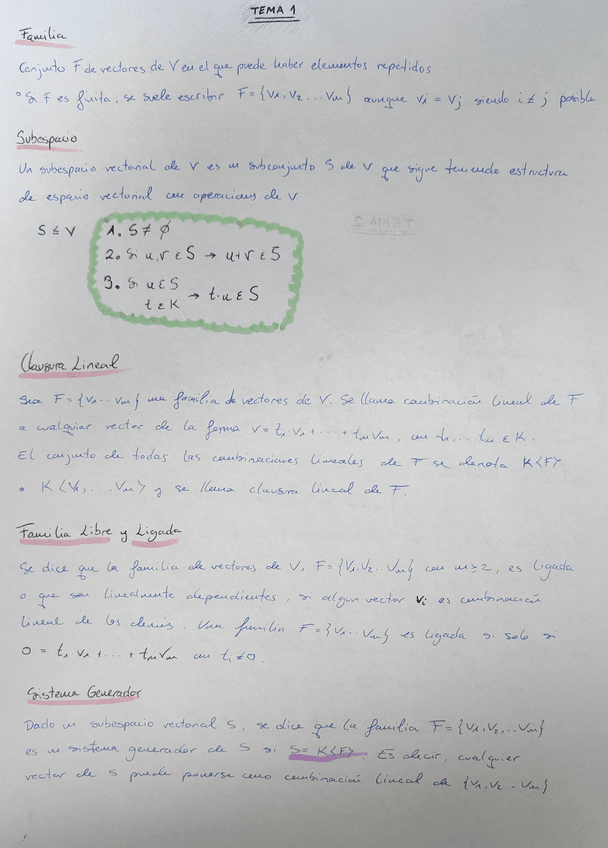 TEMA 1
Familia
Conjunto F de vectores de V en el que puede haber elementos repetidos
° Si F es finita, se suele escribir F = {v1, v2 ... vm} aunque vi = vj siendo i ≠ j posible
Subespacio
Un subespacio vectorial de V es un subconjunto S de V que sigue teniendo estructura
de espacio vectorial con operaciones de V
TEMA 2
S ≤ V
1. S ≠ ∅
2. Si u, v ε S → u+v ε S
3. Si u ε S
t ε K → t·u ε S
Clausura Lineal
Sea F = {v1 ... vm} una familia de vectores de V. Se llama combinación lineal de F
a cualquier vector de la forma v = t1 v1 + ... + tm vm, con t1, ... tm ε K.
El conjunto de todas las combinaciones lineales de F se denota K<F>
o K<v1, ... vm> y se llama clausura lineal de F.
Familia Libre y Ligada
Se dice que la familia de vectores de V, F = {v1, v2 ... vm} con m ≥ 2, es ligada
o que son linealmente dependientes, si algun vector vi es combinación
lineal de los demás. Una familia F = {v1 ... vm} es ligada si solo si
0 = t1 v1 + ... + tm vm con ti ≠ 0.
Sistema Generador
Dado un subespacio vectorial S, se dice que la familia F = {v1, v2, ... vm}
es un sistema generador de S si S = K<F>. Es decir, cualquier
vector de S puede ponerse como combinación lineal de {v1, v2 ... vm}